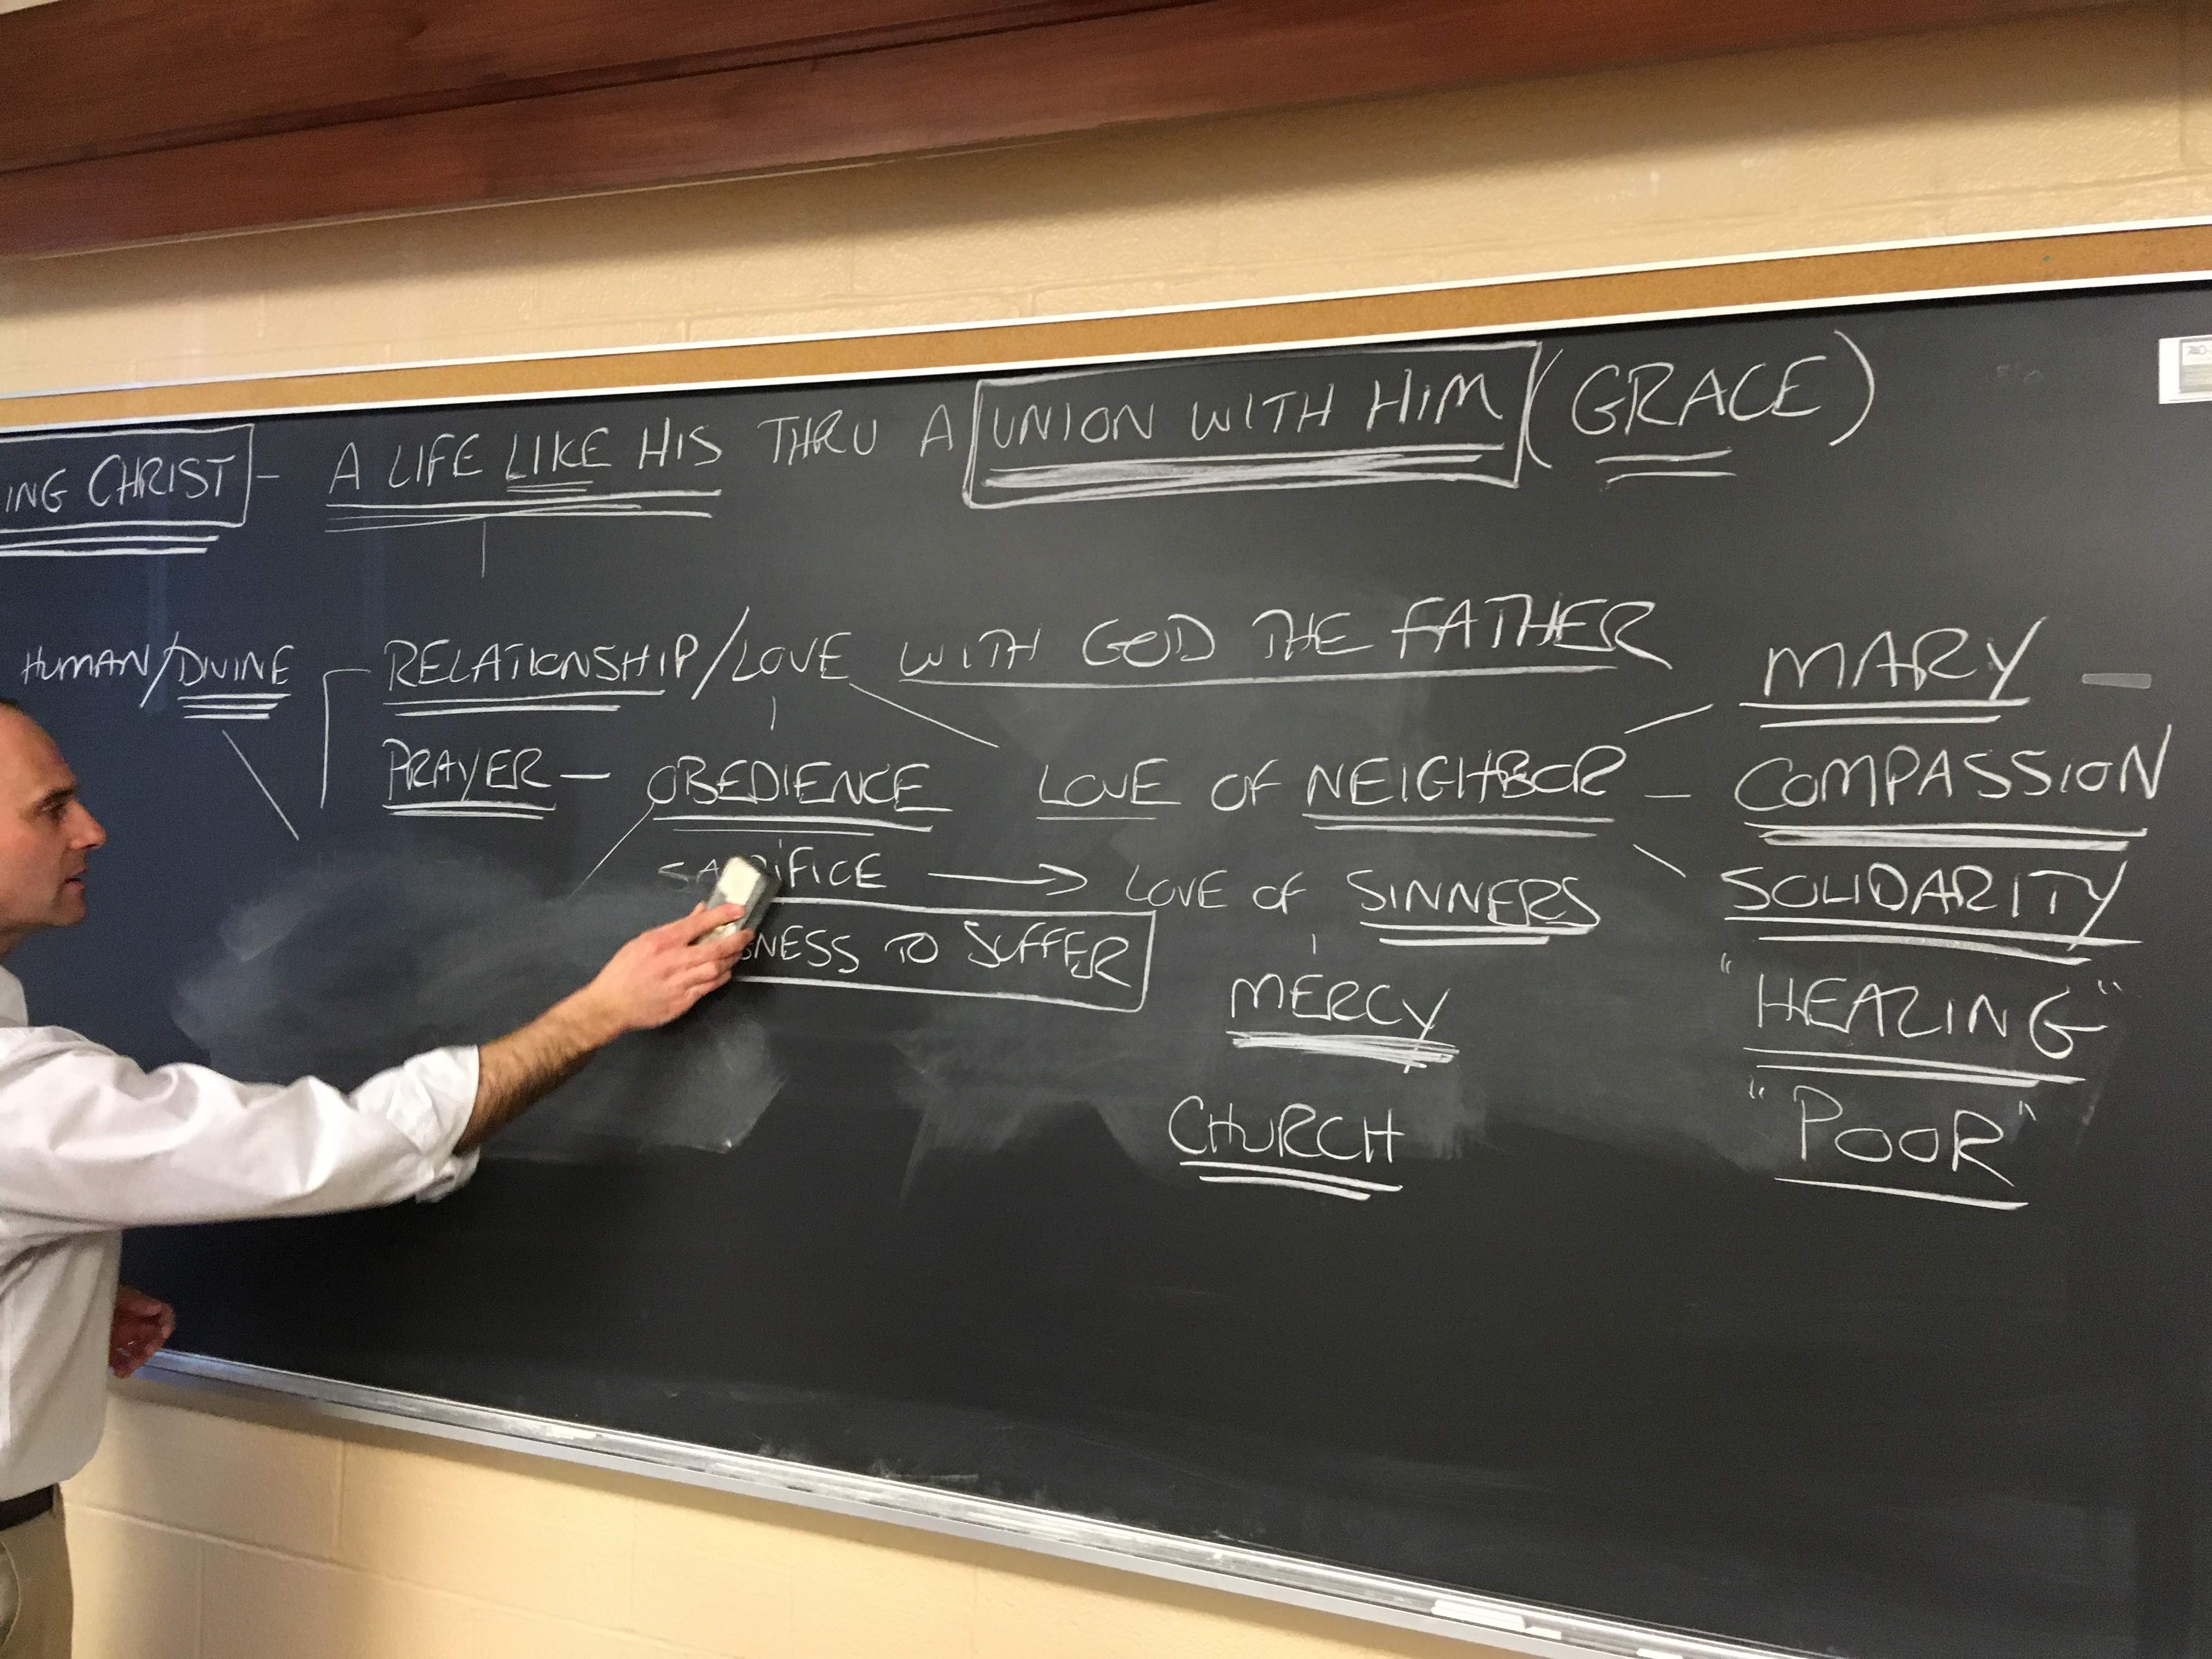 ING CHRIST - A LIFE LIKE HIS THRU A UNION WITH HIM (GRACE)
HUMAN/DIVINE RELATIONSHIP/LOVE WITH GOD THE FATHER MARY -
PRAYER - OBEDIENCE LOVE OF NEIGHBOR - COMPASSION
SACRIFICE → LOVE OF SINNERS SOLIDARITY
NESS TO SUFFER MERCY "HEALING"
CHURCH "POOR"